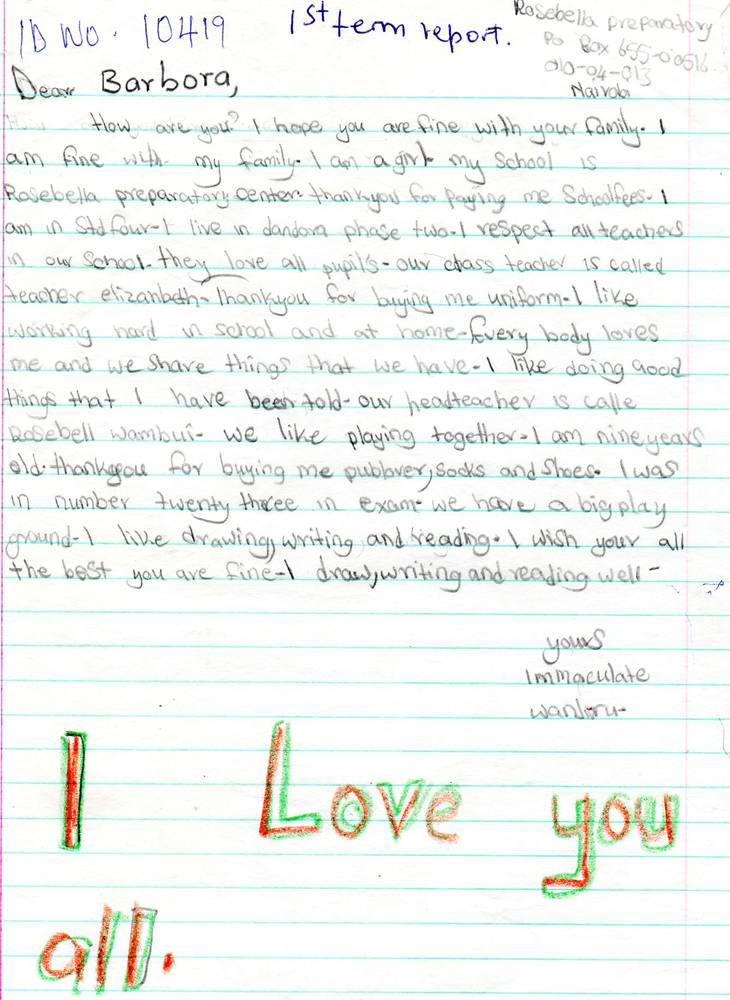 ID NO. 10419 1st term report.
Rosebella preparatory
Po Box 655-00516
010-04-013
Nairobi
Dear Barbora,
How are you? I hope you are fine with your family. I
am fine with my family. I am a girl my school is
Rosebella preparatory center. thankyou for paying me Schoolfees. I
am in Std four-I live in dandora phase two-I respect all teachers
in our school-they love all pupil's-our class teacher is called
teacher elizanbeth-Thankyou for buying me uniform-I like
working hard in school and at home-Every body loves
me and we share things that we have-I like doing good
things that I have been told-our headteacher is calle
Rosebell wambui- we like playing together-I am nine years
old. thankyou for buying me pubbver, socks and shoes. I was
in number twenty three in exam. we have a big play
ground-I like drawing, writing and reading. I wish your all
the best you are fine-I draw, writing and reading well-
yours
Immaculate
wanjiru-
I Love you
all.